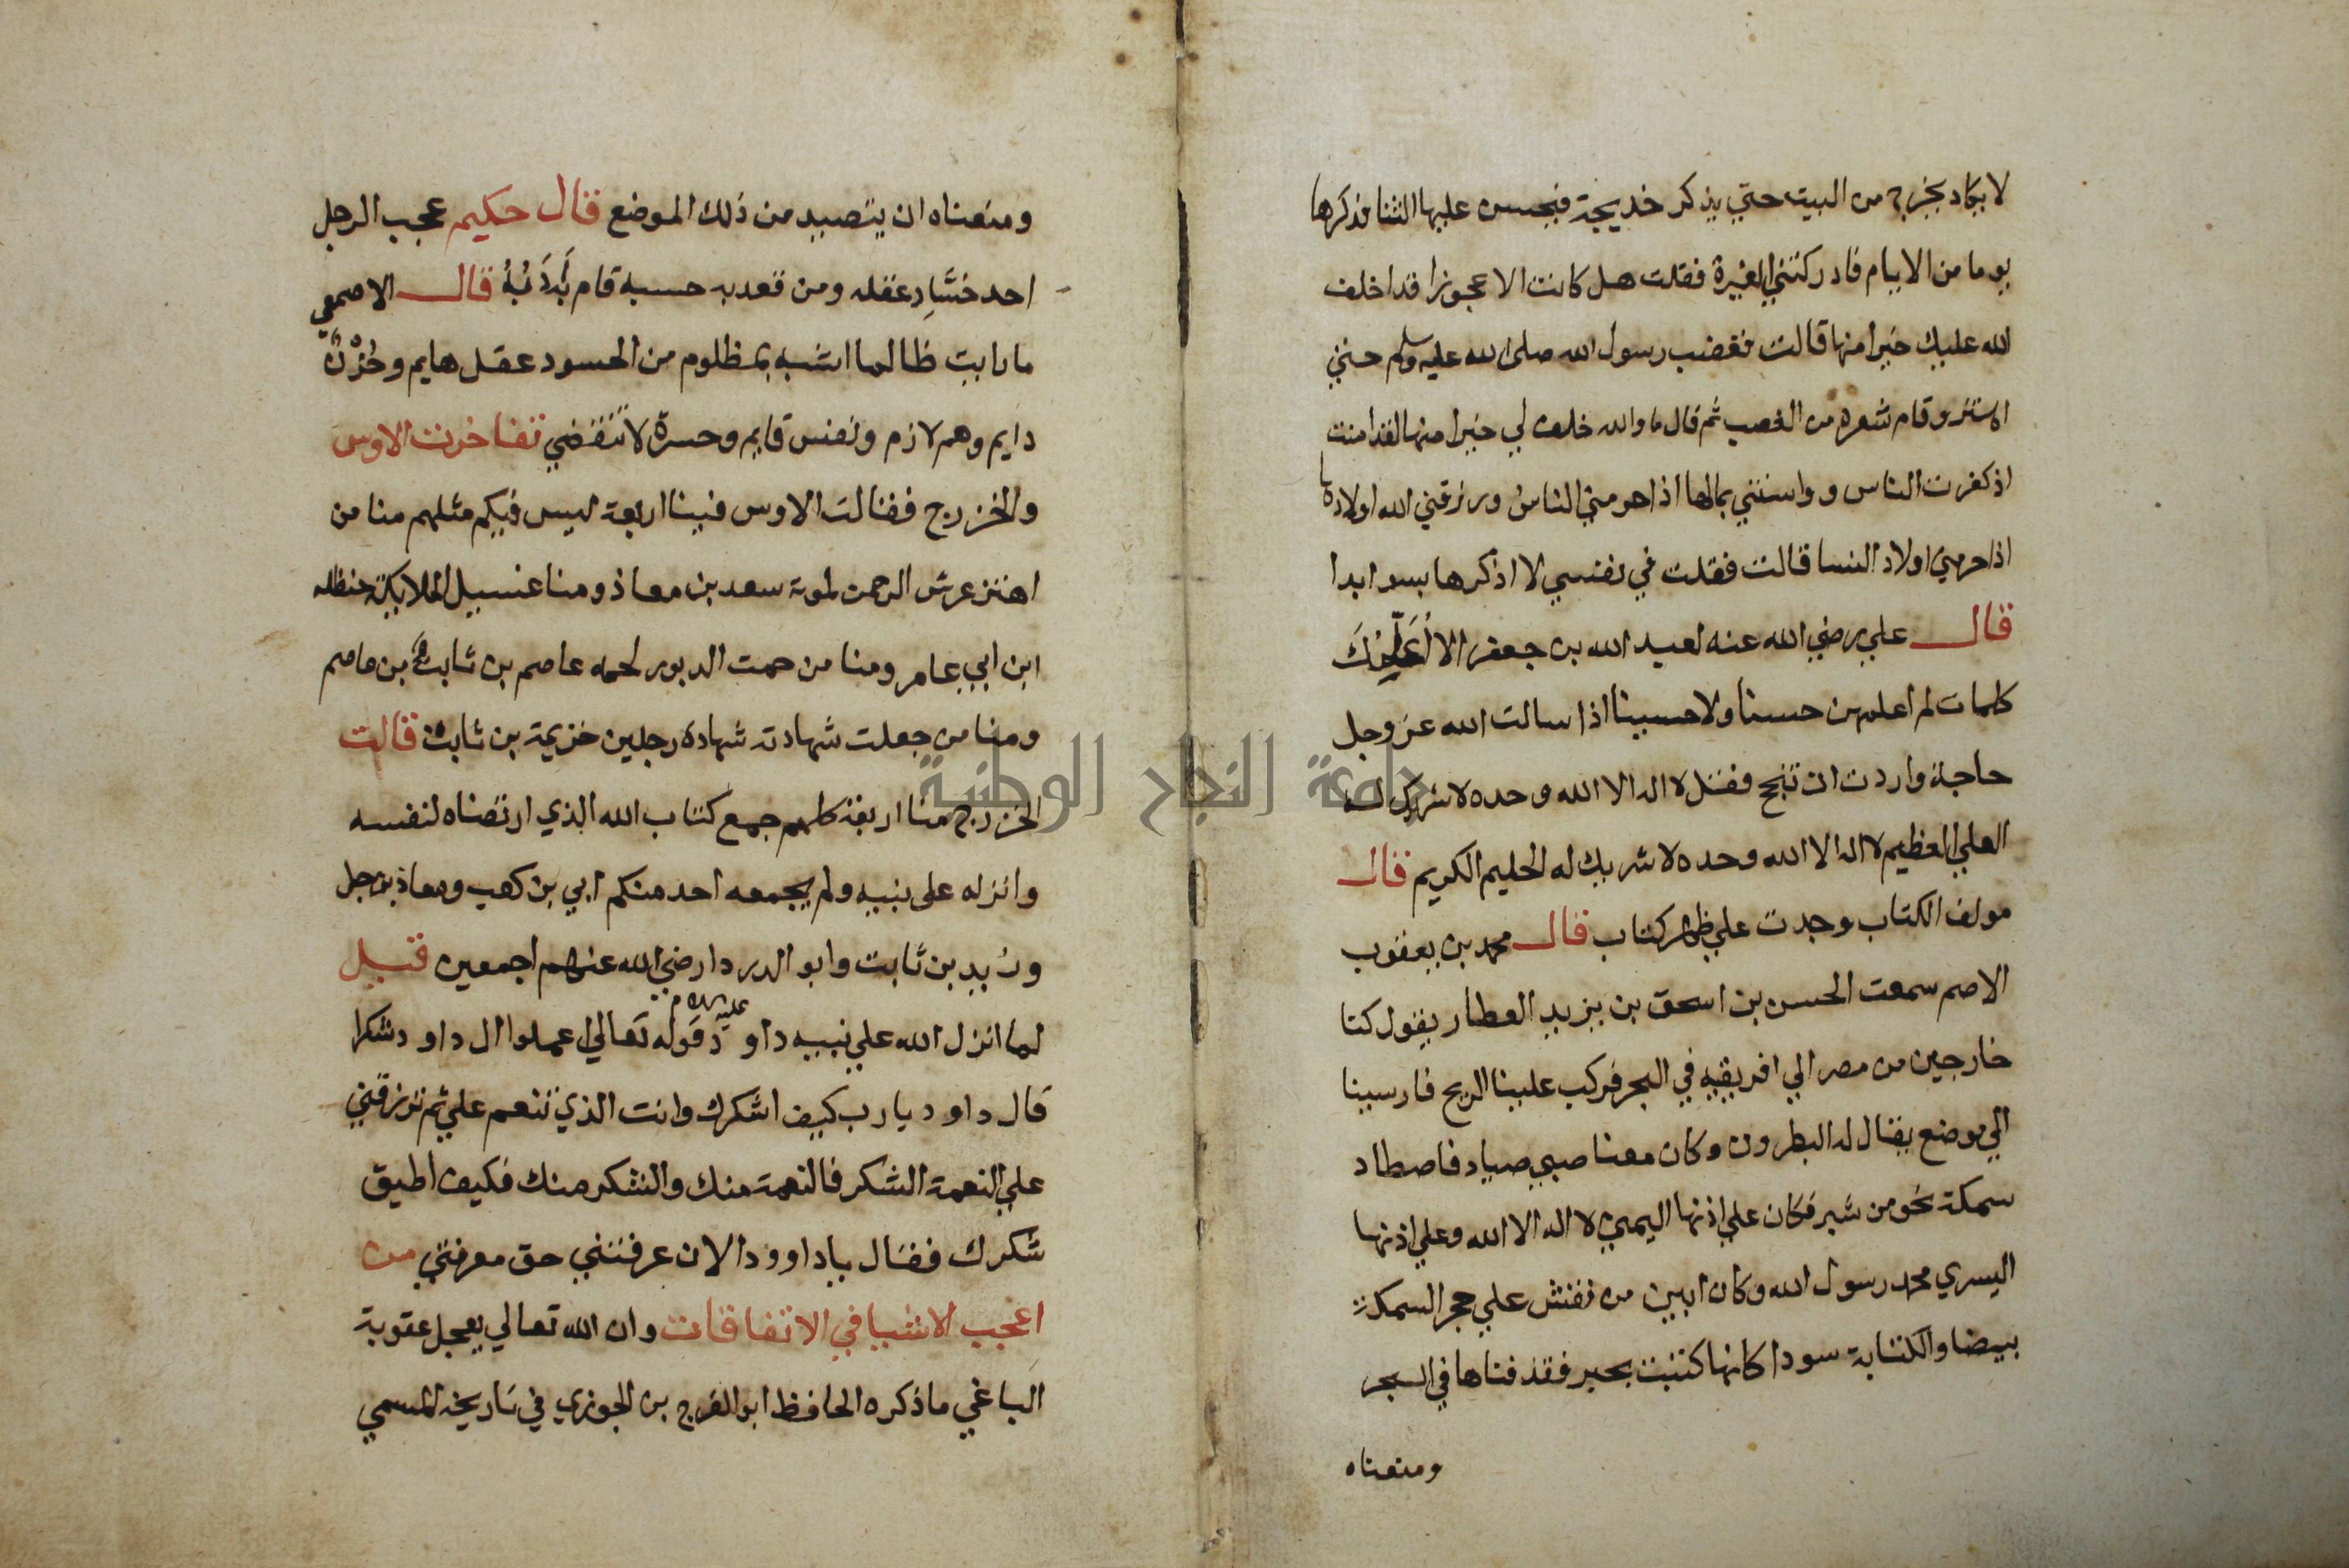 لا يكاد يخرج من البيت حتي يذكر خديجة فيحسن عليها الثنا فذكرها
يوما من الايام فادركتني الغيرة فقلت هل كانت الا عجوزا قد اخلف
الله عليك خيرا منها قالت فغضب رسول الله صلى الله عليه وسلم حتى
اهتز وقام شعره من الغضب ثم قال ما والله خلف لي خيرا منها لقد امنت
اذ كفرت الناس وواستني بمالها اذ احرمني الناس ورزقني الله اولادها
اذ احرمني اولاد النسا قالت فقلت في نفسي لا اذكرها بسو ابدا
قال علي رضي الله عنه لعبد الله بن جعفر الا اعلمك
كلمات لم اعلمهن حسنا ولا حسينا اذا سالت الله عز وجل
حاجة واردت ان تنجح فقل لا اله الا الله وحده لا شريك له
العلي العظيم لا اله الا الله وحده لا شريك له الحليم الكريم قال
مولف الكتاب وجدت علي ظهر كتاب قال محمد بن يعقوب
الاصم سمعت الحسن بن اسحق بن يزيد العطار يقول كنا
خارجين من مصر الي افريقيه في البحر فركب علينا الريح فارسينا
الي موضع يقال له البطرون وكان معنا صبي صياد فاصطاد
سمكة نحو من شبر فكان علي اذنها اليمني لا اله الا الله وعلي اذنها
اليسري محمد رسول الله وكان ابين من نقش علي حجر السمكة
بيضا والكتابة سودا كانها كتبت بحبر فقذفناها في البحر
ومنعناه
ومنعناه ان يتصيد من ذلك الموضع قال حكيم عجب الرجل
احد حساد عقله ومن قعد به حسبه قام به ادبه قال الاصمعي
ما رايت ظالما اشبه بمظلوم من الحسود عقل هايم وحزن
دايم وهم لازم ونفس قايم وحسرة لا تنقضي تفاخرت الاوس
والخزرج فقالت الاوس فينا اربعة ليس فيكم مثلهم منا من
اهتز عرش الرحمن لموته سعد بن معاذ ومنا غسيل الملايكة حنظله
ابن ابي عامر ومنا من حمت الدبور لحمه عاصم بن ثابت بن عاصم
ومنا من جعلت شهادته شهادة رجلين خزيمة بن ثابت قالت
الخزرج منا اربعة كلهم جمع كتاب الله الذي ارتضاه لنفسه
وانزله على نبيه ولم يجمعه احد منكم ابي بن كعب ومعاذ بن جبل
وزيد بن ثابت وابو الدردا رضي الله عنهم اجمعين قيل
لما انزل الله علي نبيه داود عليه السلام قوله تعالي اعملوا ال داود شكرا
قال داود يا رب كيف اشكرك وانت الذي تنعم علي ثم ترزقني
علي النعمة الشكر فالنعمة منك والشكر منك فكيف اطيق
شكرك فقال ياداوود الان عرفتني حق معرفتي من
اعجب الاشيا في الاتفاقات وان الله تعالي يعجل عقوبة
الباغي ما ذكره الحافظ ابو الفرج بن الجوزي في تاريخه المسمي
جامعة النجاح الوطنية